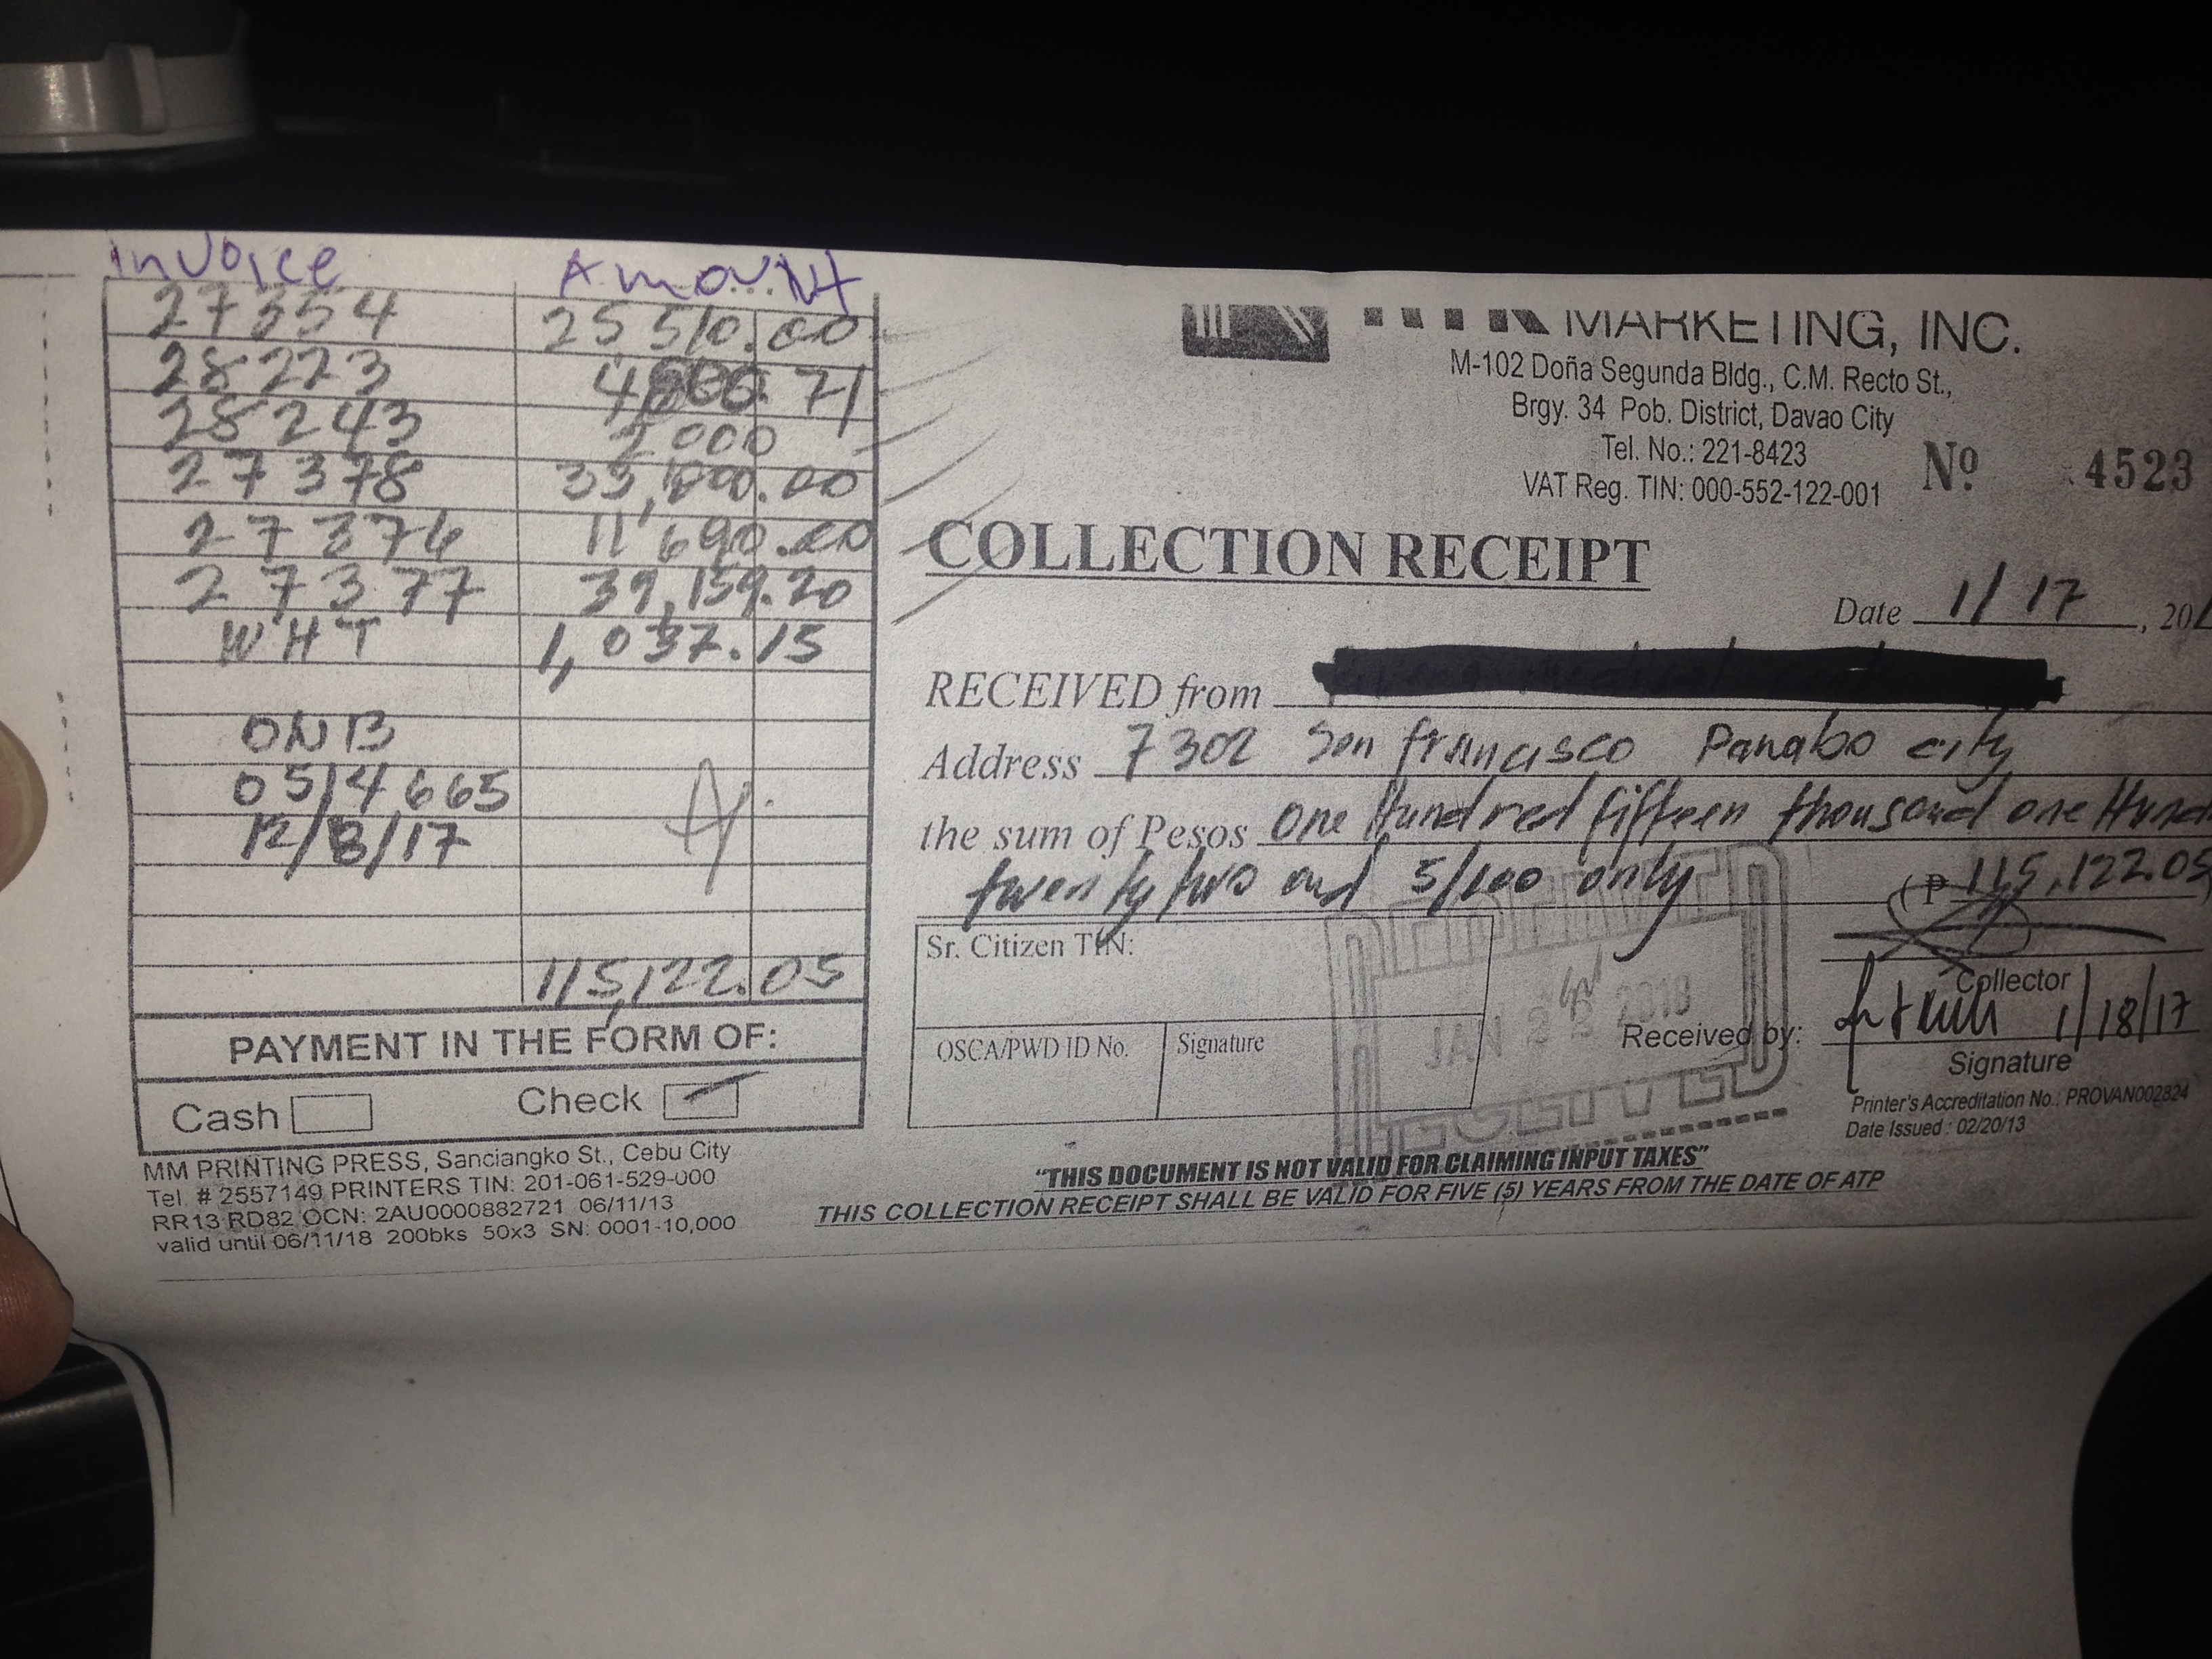 Invoice Amount
27354 25 510.00
28273 71
28243 2000
27378 33,000.00
27376 11 690.00
27377 39,159.20
WHT 1,037.15
ONB
0514665
12/8/17
115,122.05
PAYMENT IN THE FORM OF:
Cash Check
MM PRINTING PRESS, Sanciangko St., Cebu City
Tel. # 2557149 PRINTERS TIN: 201-061-529-000
RR13 RD82 OCN: 2AU0000882721 06/11/13
valid until 06/11/18 200bks 50x3 SN: 0001-10,000
MARKETING, INC.
M-102 Doña Segunda Bldg., C.M. Recto St.,
Brgy. 34 Pob. District, Davao City
Tel. No.: 221-8423
VAT Reg. TIN: 000-552-122-001
Nº 4523
COLLECTION RECEIPT
Date 1/17, 20
RECEIVED from
Address 7302 San francisco Panabo city
the sum of Pesos One Hundred fifteen thousand one
twenty two and 5/100 only (₱ 115,122.05
Sr. Citizen TIN:
OSCA/PWD ID No. Signature
JAN 2018
RECEIVED
Collector
Received by: 1/18/17
Signature
Printer's Accreditation No.: PROVAN002824
Date Issued : 02/20/13
"THIS DOCUMENT IS NOT VALID FOR CLAIMING INPUT TAXES"
THIS COLLECTION RECEIPT SHALL BE VALID FOR FIVE (5) YEARS FROM THE DATE OF ATP